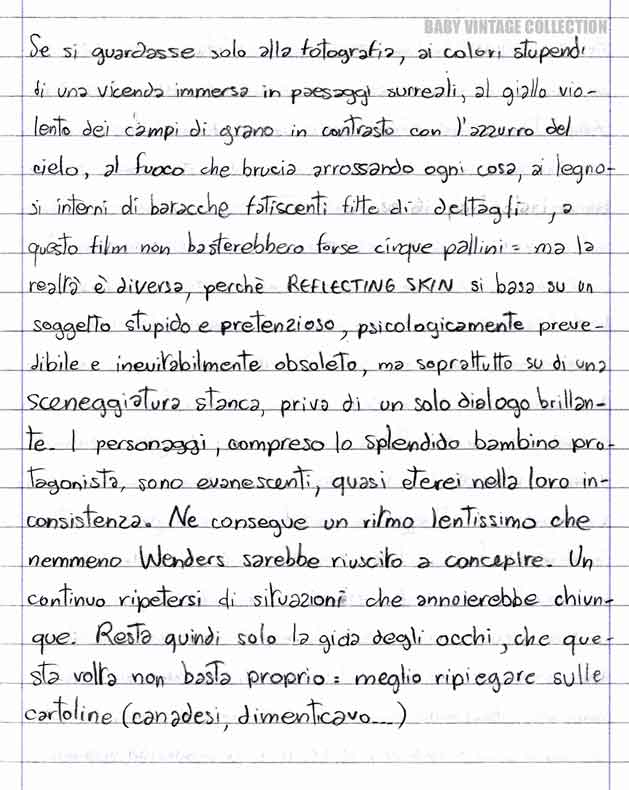 BABY VINTAGE COLLECTION
Se si guardasse solo alla fotografia, ai colori stupendi
di una vicenda immersa in paesaggi surreali, al giallo vio-
lento dei campi di grano in contrasto con l'azzurro del
cielo, al fuoco che brucia arrossando ogni cosa, ai legno-
si interni di baracche fatiscenti fitte di dettagli, a
questo film non basterebbero forse cinque pallini: ma la
realtà è diversa, perchè REFLECTING SKIN si basa su un
soggetto stupido e pretenzioso, psicologicamente preve-
dibile e inevitabilmente obsoleto, ma soprattutto su di una
sceneggiatura stanca, priva di un solo dialogo brillan-
te. I personaggi, compreso lo splendido bambino pro-
tagonista, sono evanescenti, quasi eterei nella loro in-
consistenza. Ne consegue un ritmo lentissimo che
nemmeno Wenders sarebbe riuscito a concepire. Un
continuo ripetersi di situazioni che annoierebbe chiun-
que. Resta quindi solo la gioia degli occhi, che que-
sta volta non basta proprio: meglio ripiegare sulle
cartoline (canadesi, dimenticavo...)